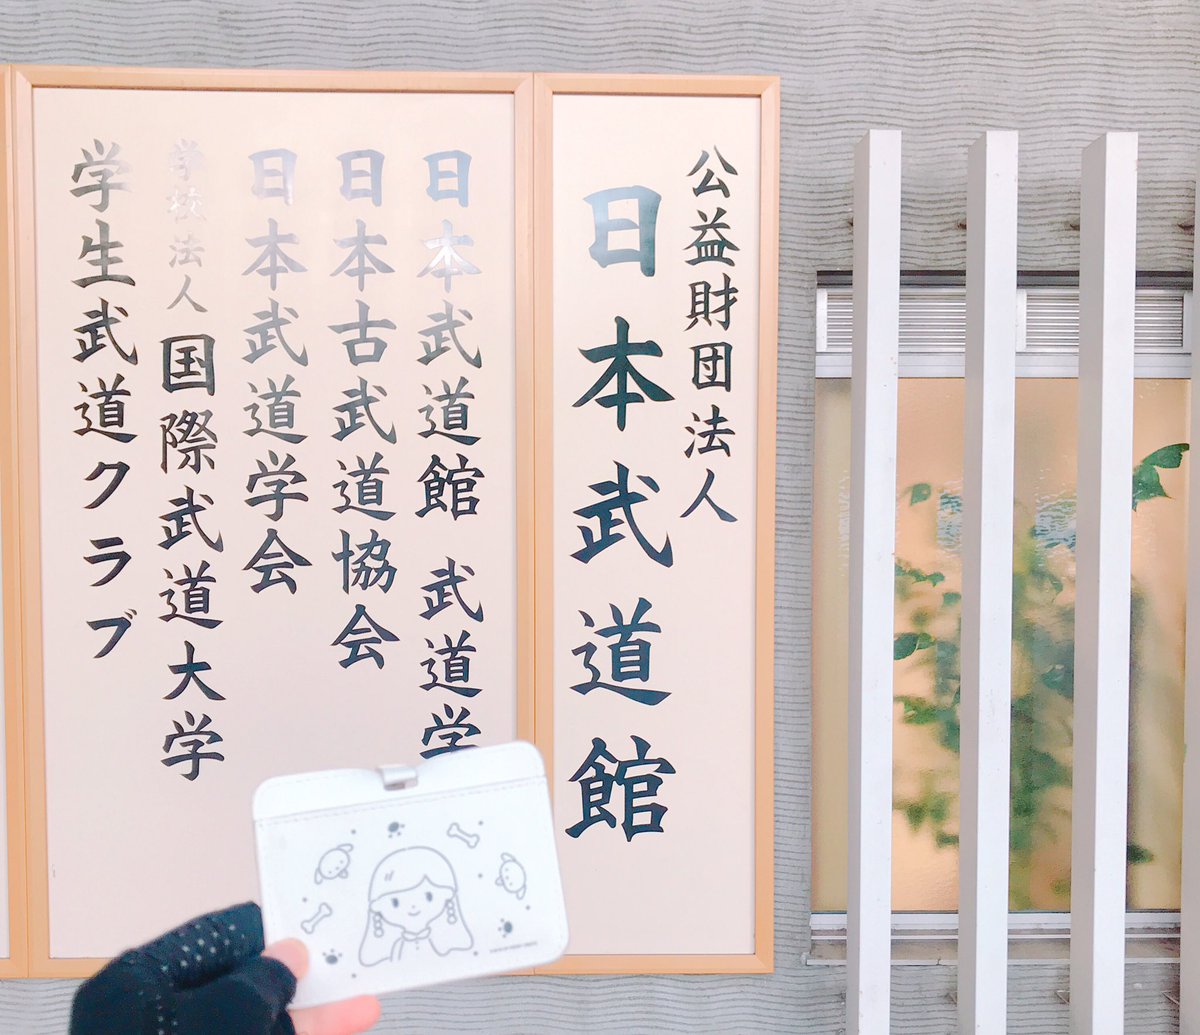 公益財団法人
日本武道館
日本武道館 武道学
日本古武道協会
日本武道学会
学校法人 国際武道大学
学生武道クラブ